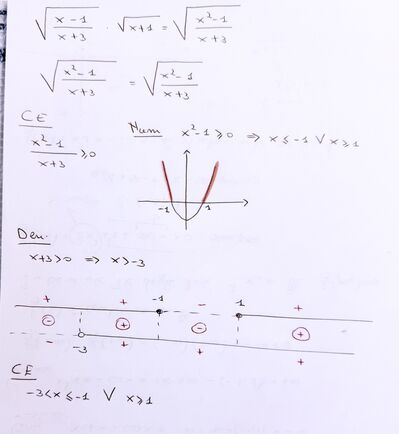 √((x-1)/(x+3)) · √(x+1) = √((x²-1)/(x+3))
√((x²-1)/(x+3)) = √((x²-1)/(x+3))
CE
(x²-1)/(x+3) ≥ 0
Num x²-1 ≥ 0 ⇒ x ≤ -1 ∨ x ≥ 1
-1 1
Den.
x+3 > 0 ⇒ x > -3
+ + -1 - 1 +
⊖ ⊕ ⊖ ⊕
- -3 + + +
CE
-3 < x ≤ -1 ∨ x ≥ 1